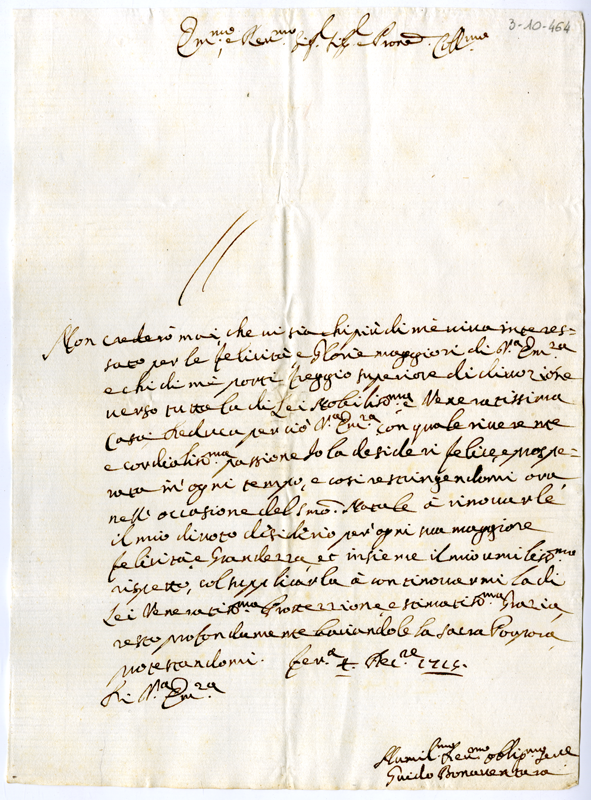 3-10-464
Em.mo e Rev.mo Sig.r Sig.r e Pron. Coll.mo
Non crederò mai, che vi sia chi più di mè viva interes=
sato per le felicità e Glorie maggiori di V.a Em.za
e chi di mè porti freggio superiore di divozione
verso tutta la di Lei Nobiliss.ma e Veneratissima
Casa. Deduca perciò V.a Em.za con quale riverente
e cordialiss.ma passione Io la desideri felice, e prospe=
rata in ogni tempo, e così restringendomi ora
nell'occasione del S.mo Natale à rinovarle
il mio divoto disiderio per ogni sua maggiore
felicità e Grandezza et insieme il mio umiliss.mo
rispetto, col supplicarla à continovarmi la di
Lei Veneratiss.ma Protezzione e stimatiss.ma Grazia,
resto profondamente baciandole la Sacra Porpora,
protestandomi. Fer.a Xbre 1715.
Di V.a Em.za
Humil.mo Dev.mo Obblig.mo Serv.e
Guido Bonaventura